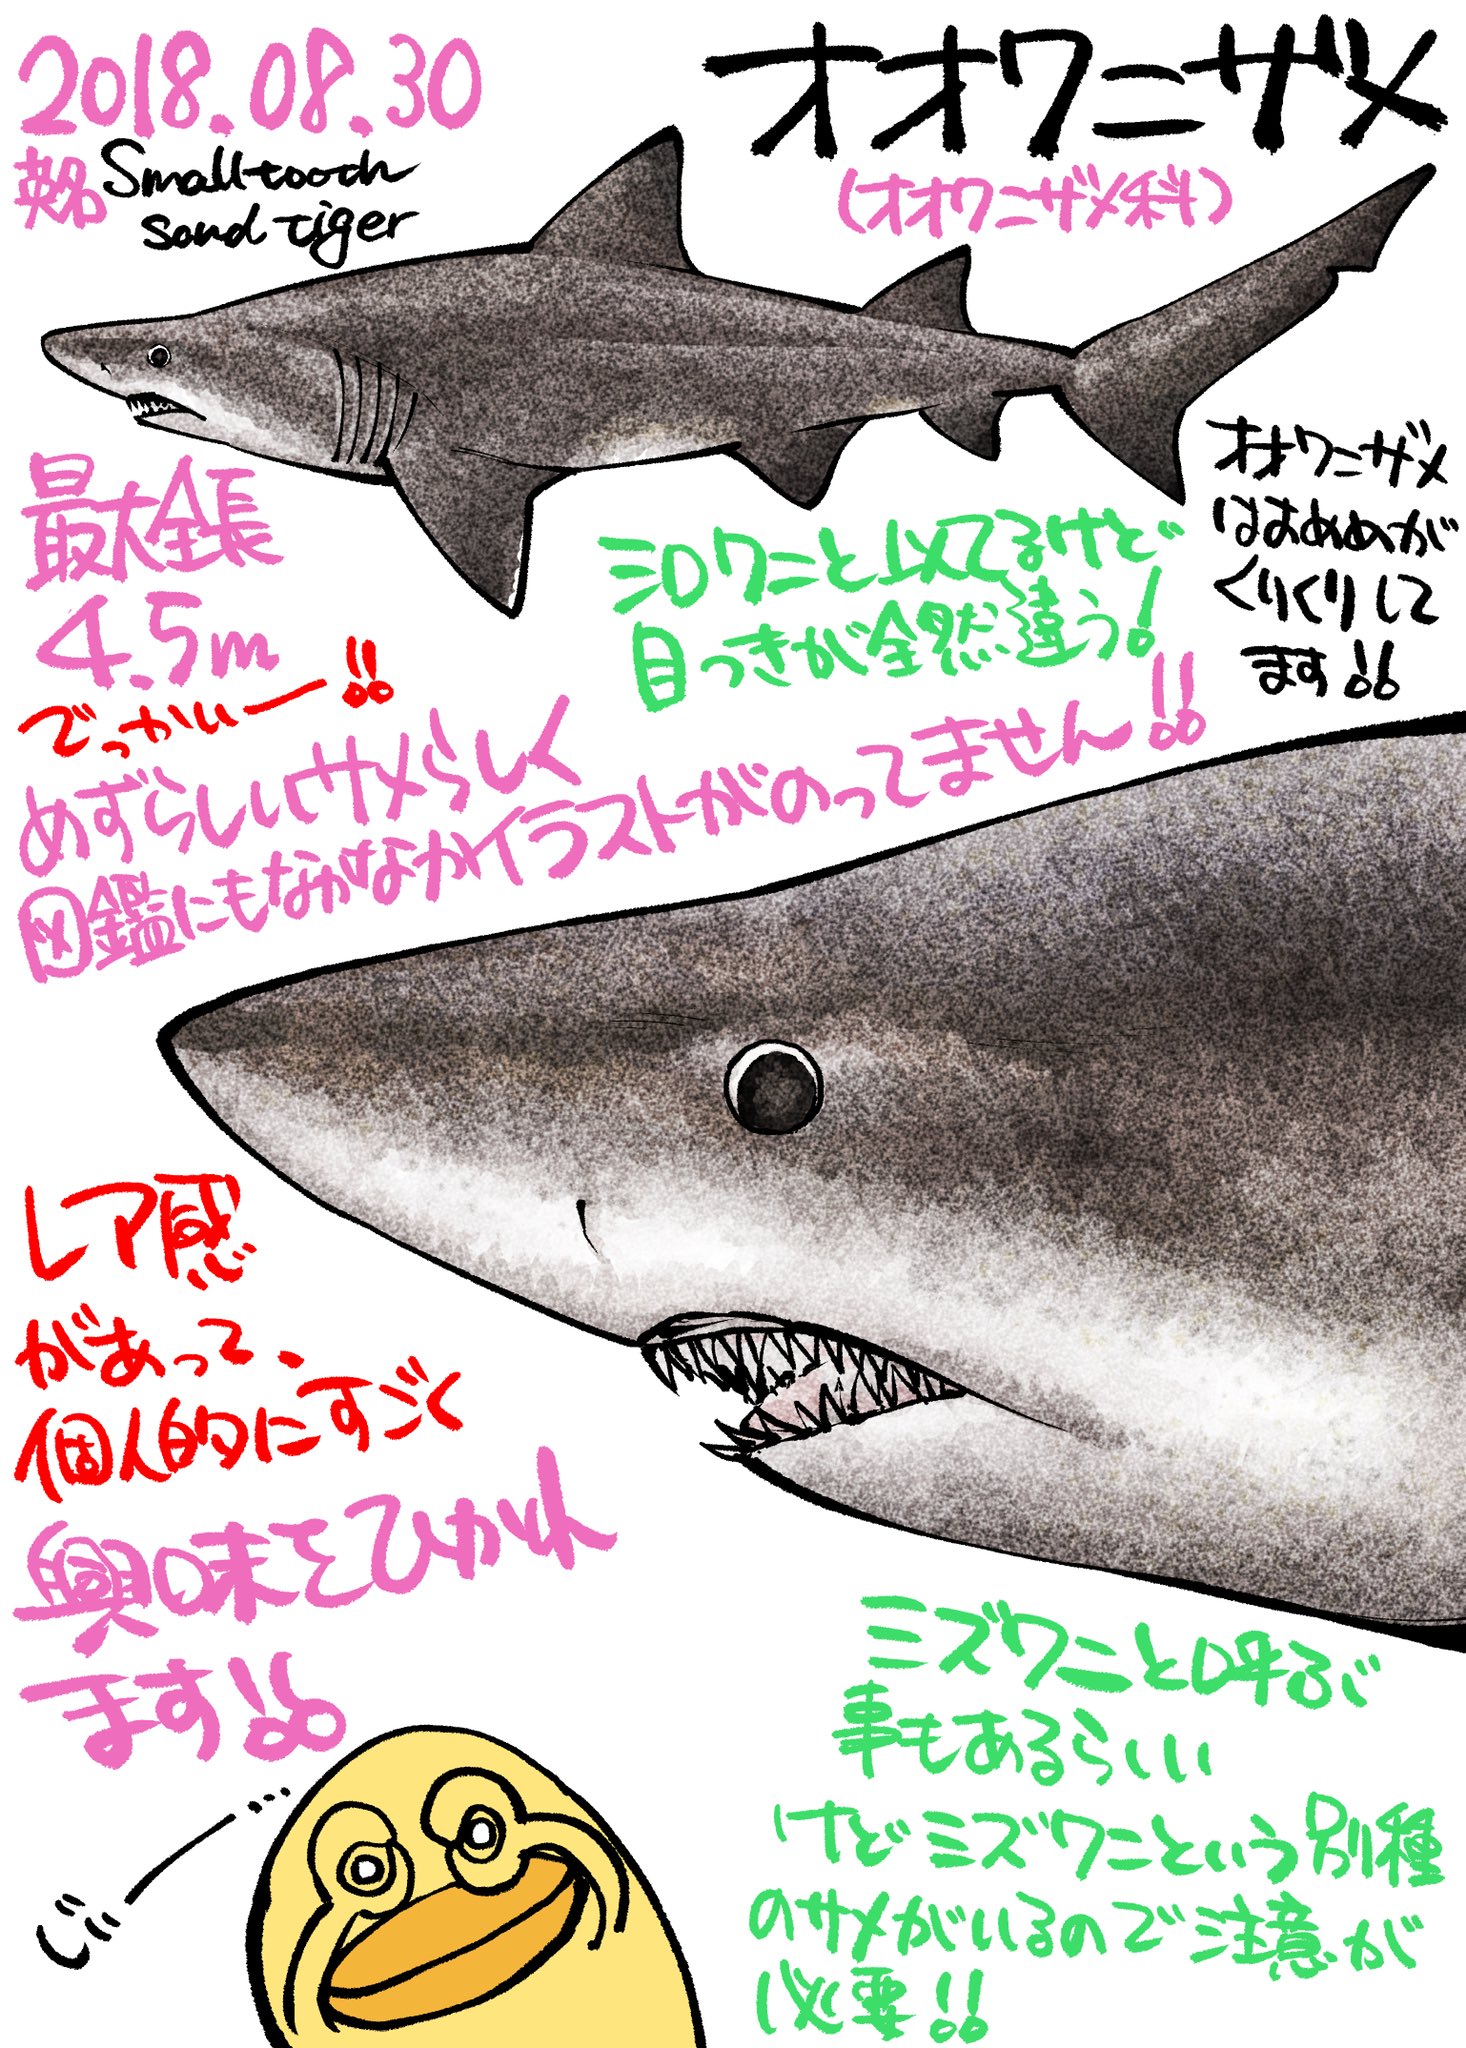 2018.08.30
オオワニザメ
(オオワニザメ科)
英名 Smalltooth
sand tiger
最大全長
4.5m
でっかいー!!
シロワニと似てるけど
目つきが全然違う!
オオワニザメ
はおめめが
くりくりして
ます!!
めずらしいサメらしく
図鑑にもなかなかイラストがのってません!!
レア感
があって、
個人的にすごく
興味をひかれ
ます!!
じー…
ミズワニと呼ぶ
事もあるらしい
けどミズワニという別種
のサメがいるので注意が
必要!!